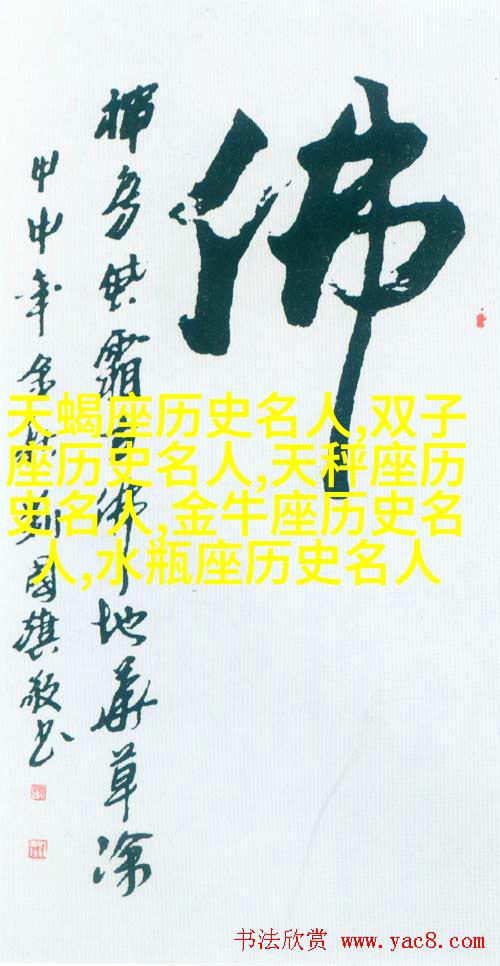 佛
地华草深
甲申年
国旗敬书
天蝎座历史名人,双子
座历史名人,天秤座历
史名人,金牛座历史名
人,水瓶座历史名人
书法欣赏 www.yac8.com